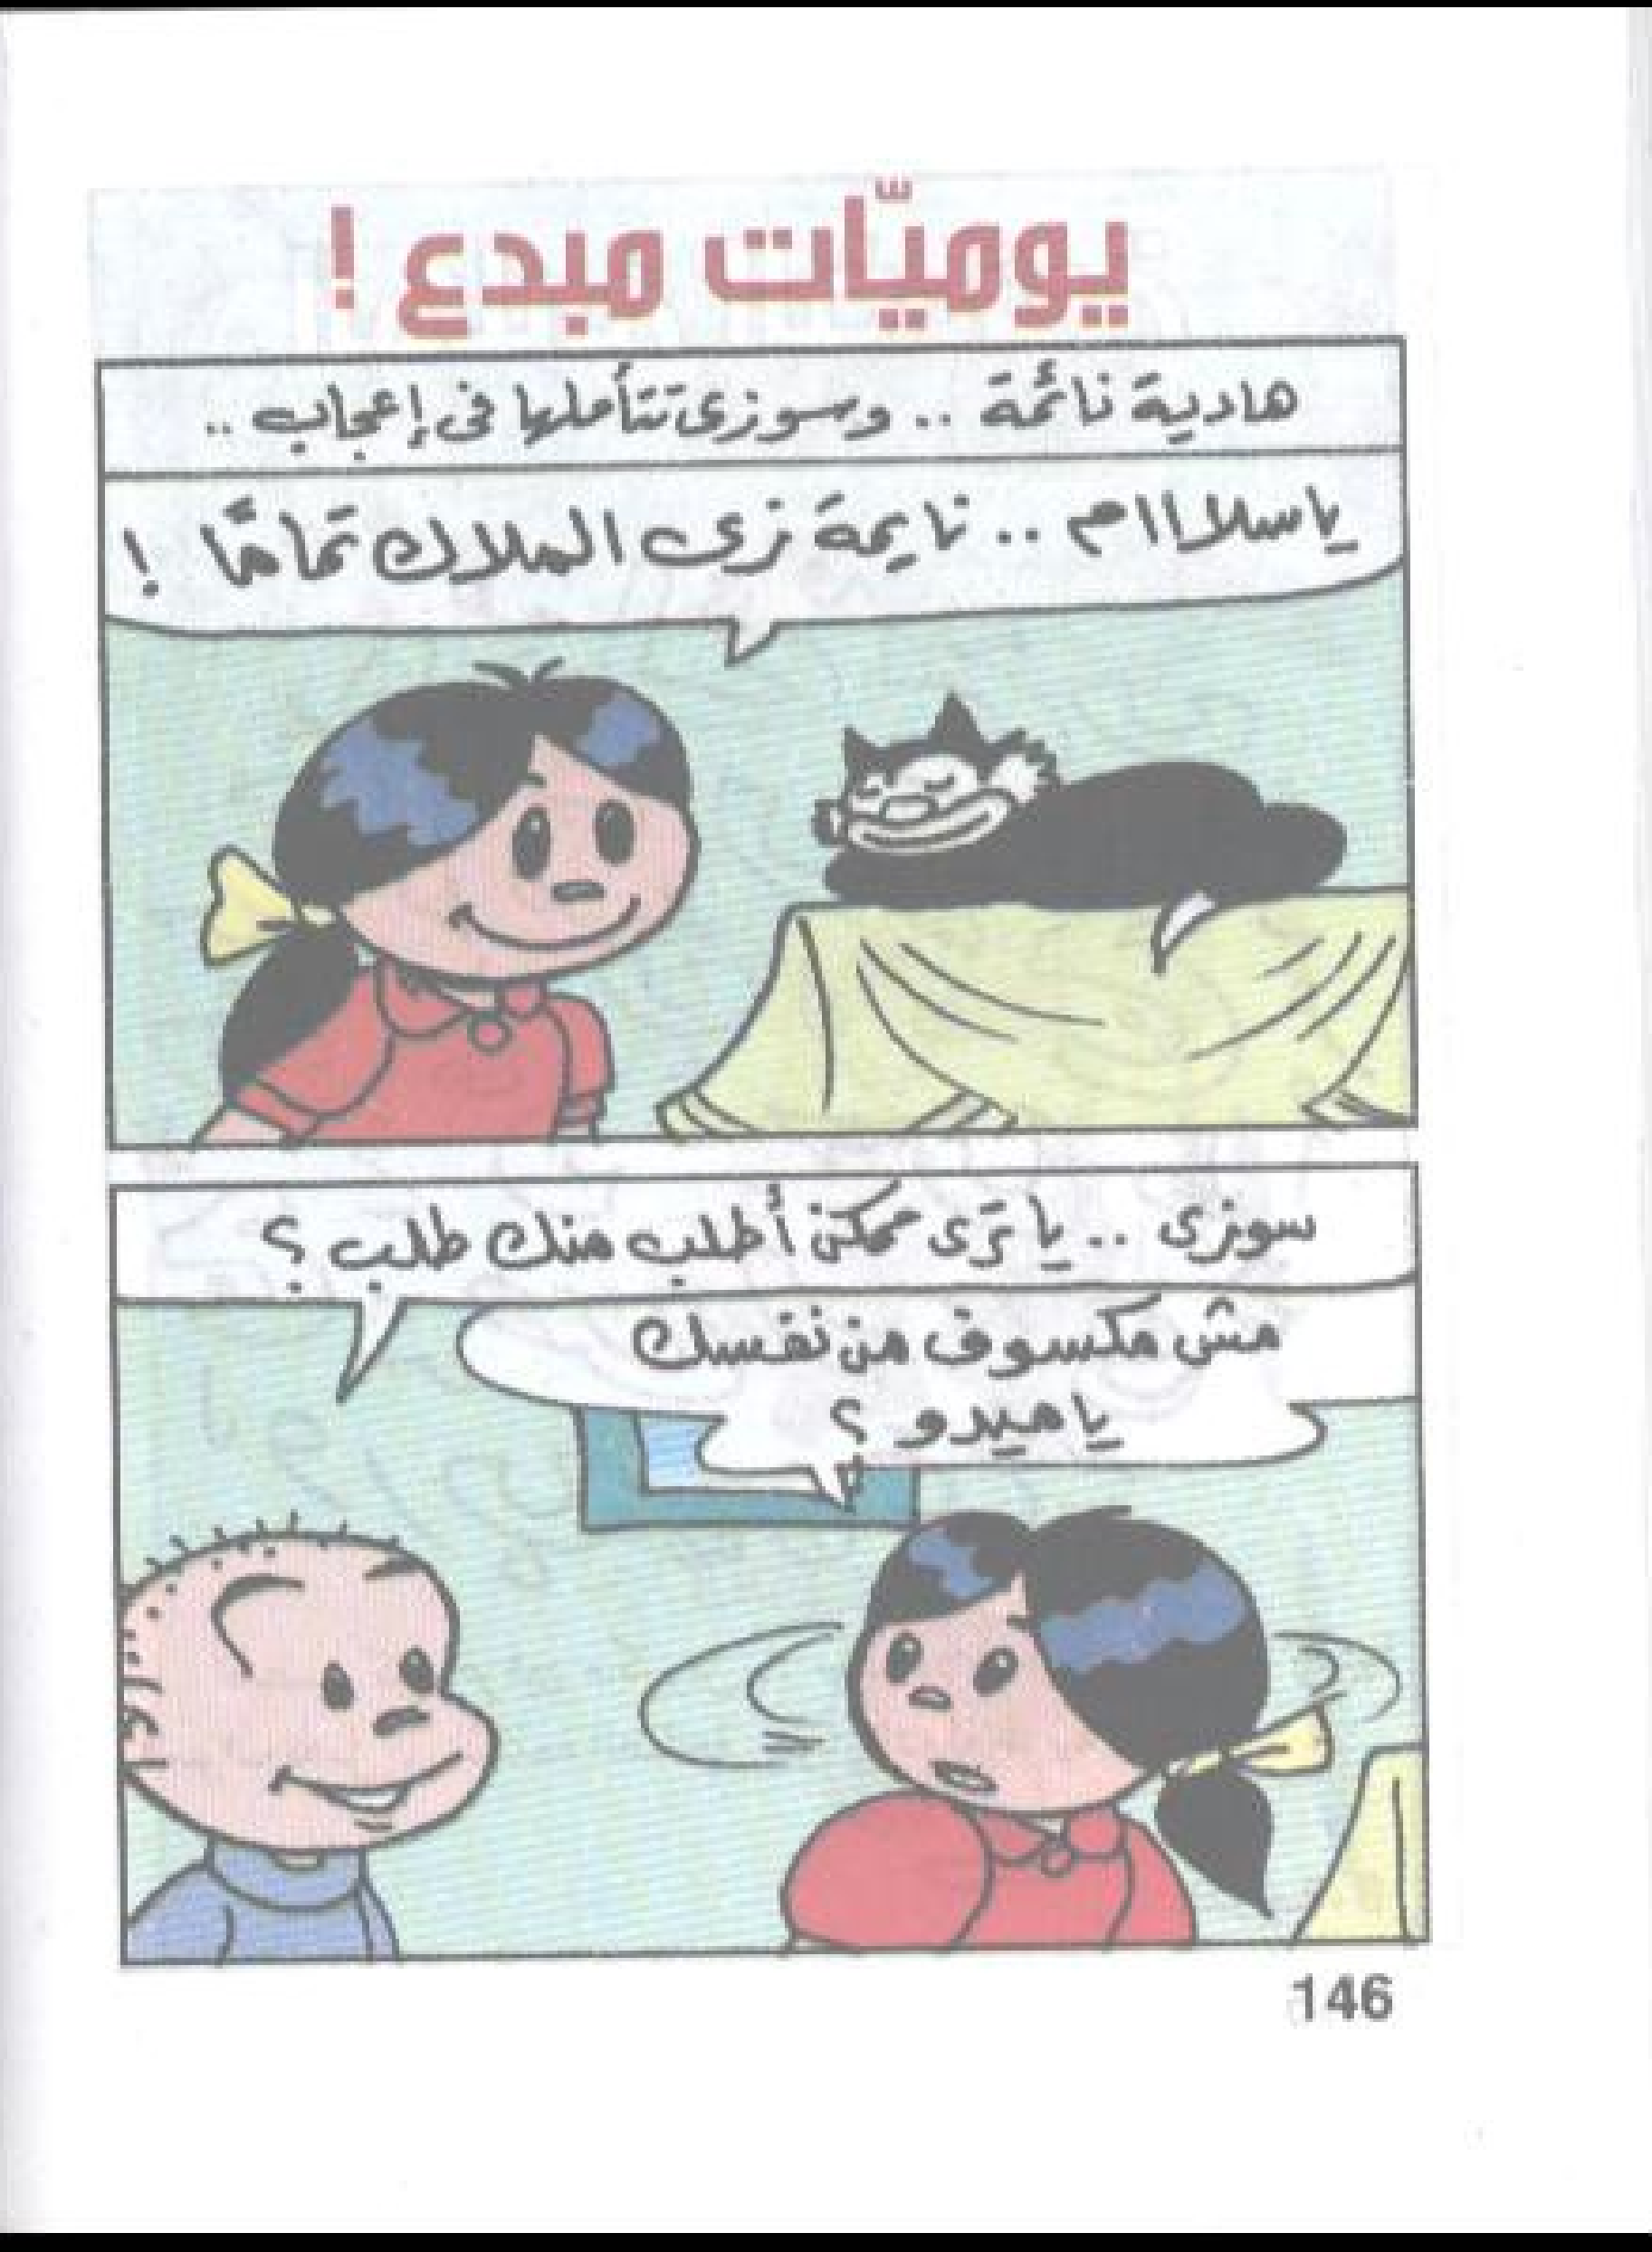 يوميّات مبدع !
هادية نائمة .. وسوزى تتأملها فى إعجاب ..
ياسلااام .. نايمة زى الملاك تمامًا !
سوزى .. يا ترى ممكن أطلب منك طلب ؟
مش مكسوف من نفسك
ياميدو ؟
146